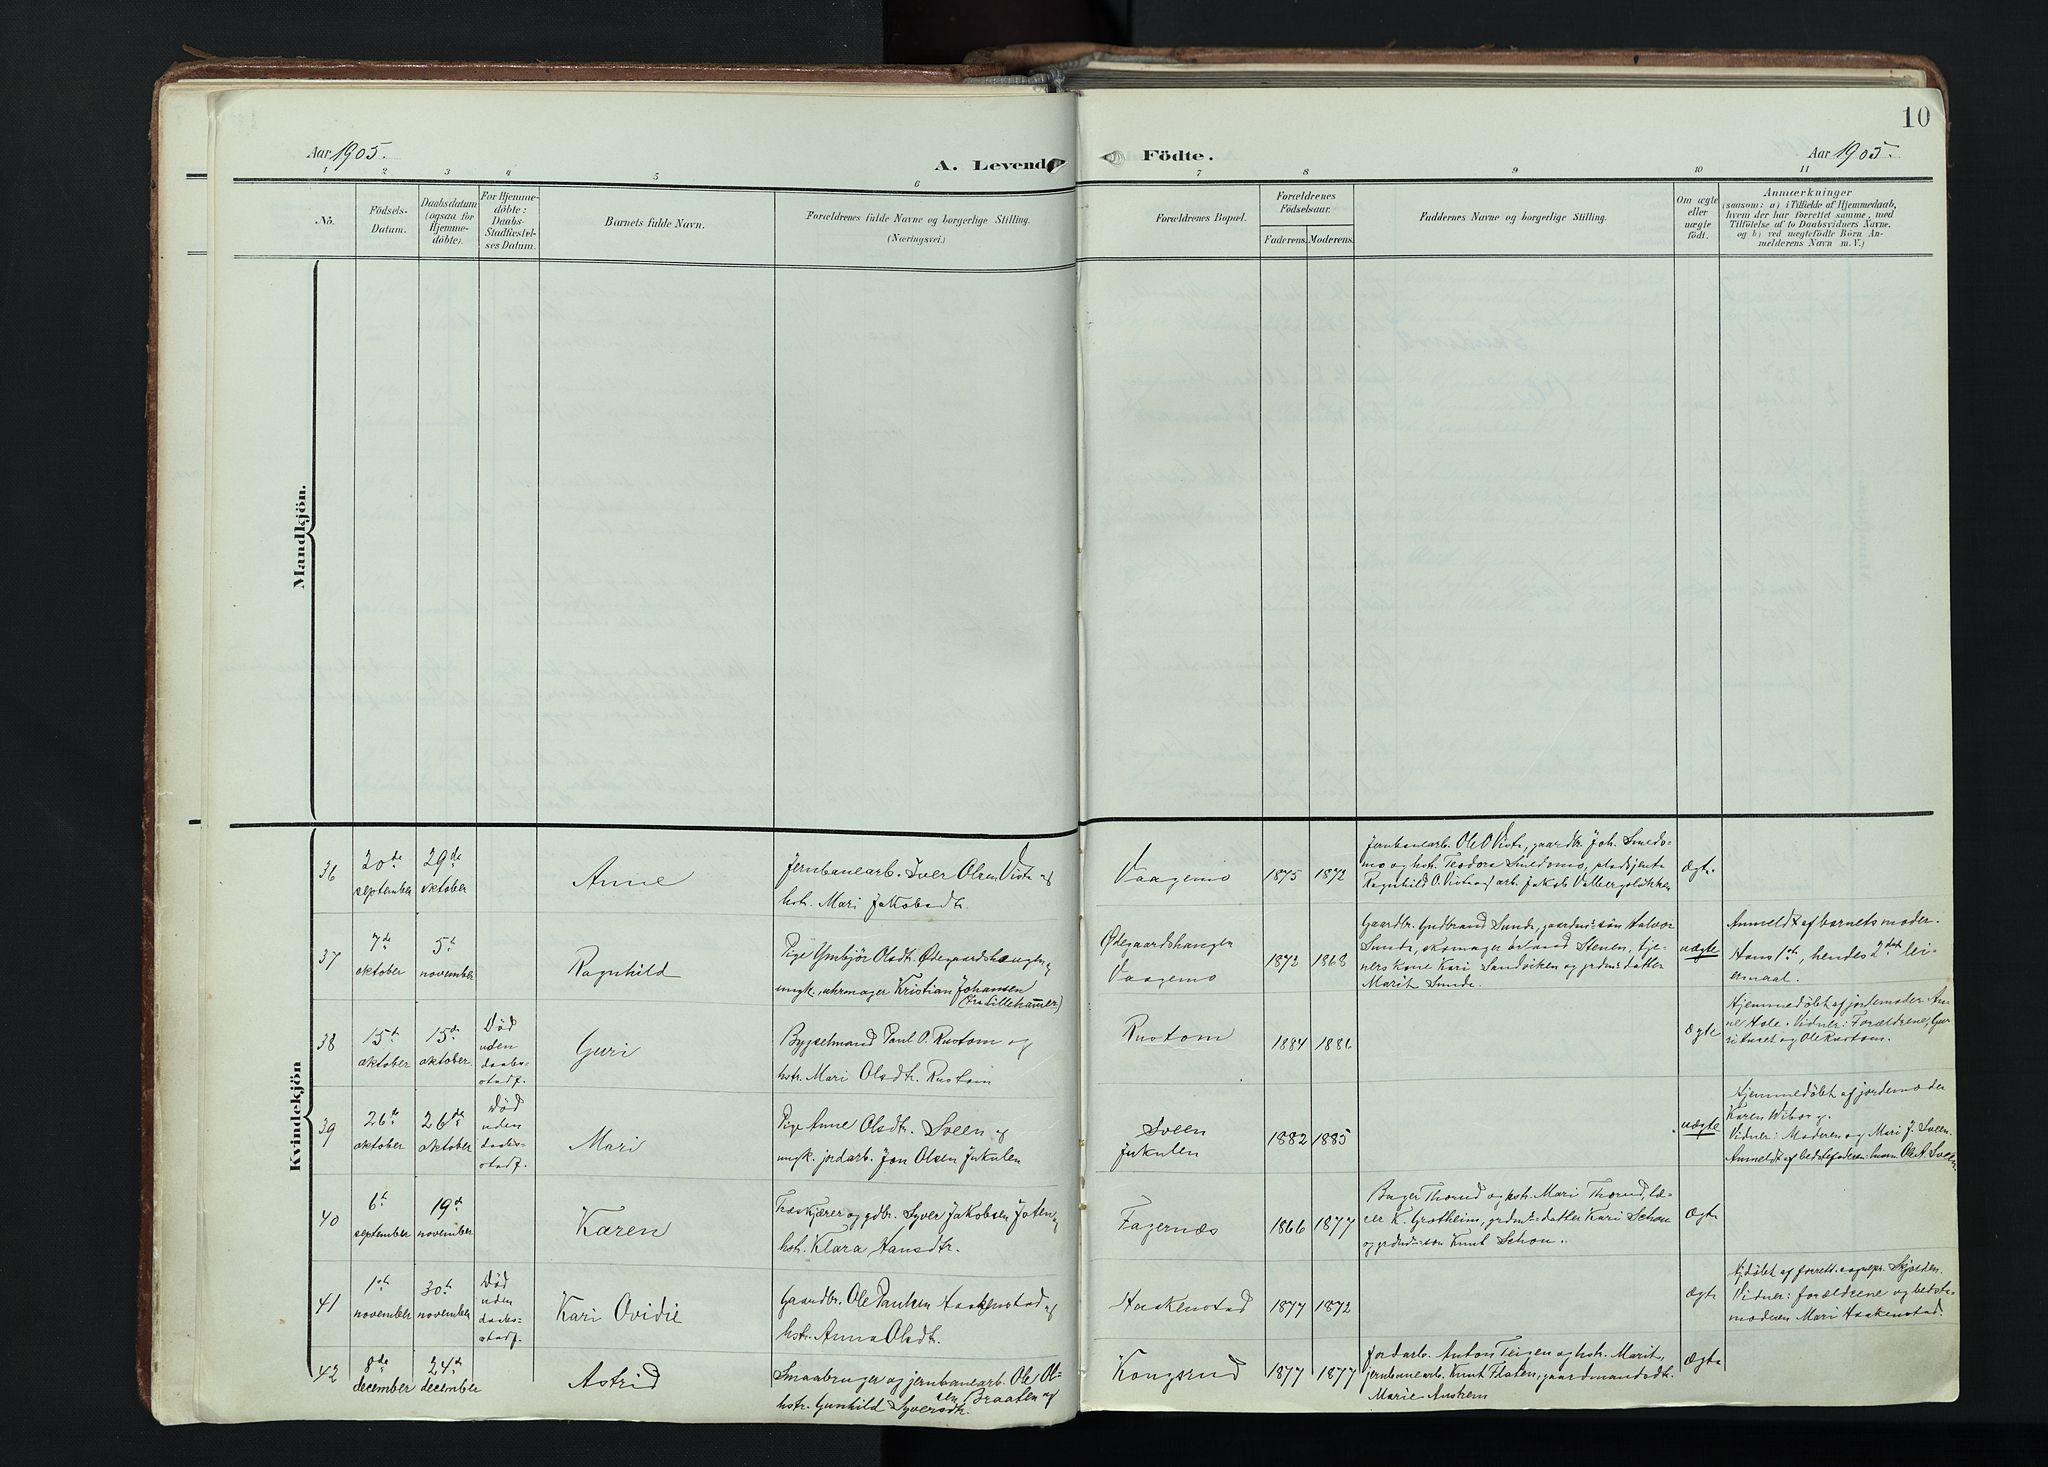 10
Aar 1905.
A. Levende Födte.
Aar 1905.
1 2 3 4 5 6 7 8 9 10 11
No.
Födsels-
Datum.
Daabsdatum
(ogsaa for
Hjemme-
döbte).
For Hjemme-
döbte:
Daabs-
Stadfæstel-
ses Datum.
Barnets fulde Navn.
Forældrenes fulde Navne og borgerlige Stilling.
(Næringsvei.)
Forældrenes Bopæl.
Forældrenes
Födselsaar.
Faderens. Moderens.
Faddernes Navne og borgerlige Stilling.
Om ægte
eller
uægte
födt.
Anmærkninger
(saasom: a) i Tilfælde af Hjemmedaab,
hvem der har forrettet samme, med
Tilföielse af to Daabsvidners Navne,
og b) ved uægtefödte Börn An-
melderens Navn m. V.)
Mandkjön.
Kvindekjön
36
20de
september
29de
oktober
Anne
Jernbanearb. Iver Olsen Vista og
hstr. Mari Jakobsdtr.
Vaagemo
1875 1872
Jernbanearb. Ole O Vista, gaardbr. Joh. Smedsmo
og hstr. Teodora Smedsmo,
Ragnhild O. Vista og arb. Jakob Valbergsløkken
Ægte
37
7de
oktober
5te
november
Ragnhild
Pige Ymbjør Olsdtr. Ødegaardshaugen og
ungk., uhrmager Kristian Johansen
(fra Lillehammer)
Ødegaardshaugen
Vaagemo
1872 1868
Gaardbr. Gudbrand Sunde, gaardm.søn Halvor
Sunde, skomager Erland Stenen, tje-
ners kone Kari Sandviken og grdm.datter
Marit Sunde.
uægte
Anmeldt af barnets moder.
Hans 1ste, hendes 2det lei-
ermaal.
38
15de
oktober
15de
oktober
Død
uden
daabs-
stadf.
Guri
Bygselmand Paul O. Rustom og
hstr. Mari Olsdtr. Rustom
Rustom
1884 1886
ægte
Hjemmedøbt af jordemoder An-
ne Hole. Vidner: Forældrene, Gu-
ri Tuset og Ole Rustom.
39
26de
oktober
26de
oktober
Død
uden
daabs-
stadf.
Mari
Pige Anne Olsdtr. Sveen og
ungk. jordarb. Jon Olsen Jukulen
Sveen
Jukulen
1882 1885
uægte
Hjemmedøbt af jordemoder
Karen Wiborg.
Vidner: Moderen og Mari J. Sveen.
Anmeldt af bedstefaderen: husm. Ole A. Sveen
40
6te
september
19de
november
Karen
Træskjærer og gdbr. Syver Jakobsen Joten og
hstr. Klara Hansdtr.
Fagernæs
1866 1877
Bager Thorud og hstr. Mari Thorud, læ-
rer K. Grotheim, grdm.datter Kari Schou
og grdm.søn Knut Schou.
Ægte
41
1ste
november
30te
november
Død
uden
daabs-
stadf.
Kari Ovidie
Gaardbr. Ole Paulsen Haakenstad og
hstr. Anna Olsdtr.
Haakenstad
1877 1872
ægte
Hjdøbt af forrett. sognepr. Skjolden.
Vidner: forældrene og bedste-
moderen Mari Haakenstad.
42
8de
december
24de
december
Astrid
Smaabruger og jernbanearb. Ole Ol-
sen Braaten og
hstr. Gunhild Syversdtr.
Kongsrud
1877 1877
Jordarb. Anton Teigen og hstr. Marit,
jernbanearb. Knut Flaten, gaardmandsdtr.
Marie Anshem
Ægte